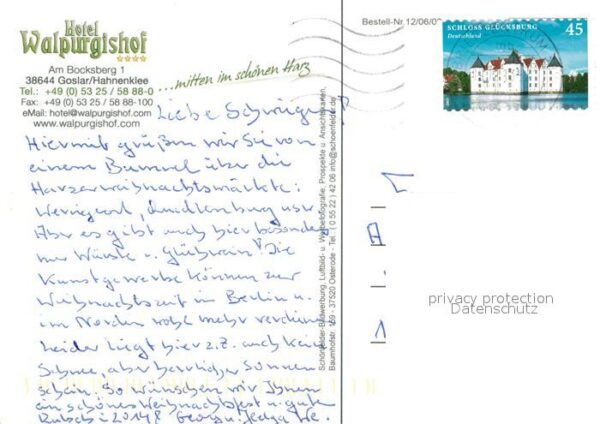 Hotel
Walpurgishof
Am Bocksberg 1
38644 Goslar/Hahnenklee
Tel.: +49 (0) 53 25 / 58 88-0
Fax: +49 (0) 53 25 / 58 88-100
eMail: hotel@walpurgishof.com
www.walpurgishof.com
...mitten im schönen Harz
Bestell-Nr 12/06/0
SCHLOSS GLÜCKSBURG 45
Deutschland
Liebe
Hiermit grüßen wir Sie von
einem Bummel über die
Harzerweihnachtsmärkte:
Wernigerod, Quedlenburg usw.
Aber es gibt auch hier besonders
nur Würste u. Glühwein! Die
Kunstgewerbe können zur
Weihnachtszeit in Berlin u.
im Norden wohl mehr verdienen
Leider liegt hier z.Z. auch kein
Schnee, aber herrlicher Sonnen
schein. So wünschen wir Ihnen
ein schönes Weihnachtsfest u. gute
Rutsch i 2014! Georg u. Helga
Schönfelder-Bildwerbung, Luftbild- u. Werbefotografie, Prospekte u. Ansichtskarten,
Baumhofstr. 159 - 37520 Osterode - Tel. ( 0 55 22 ) 42 06 info@schoenfelder.de
privacy protection
Datenschutz